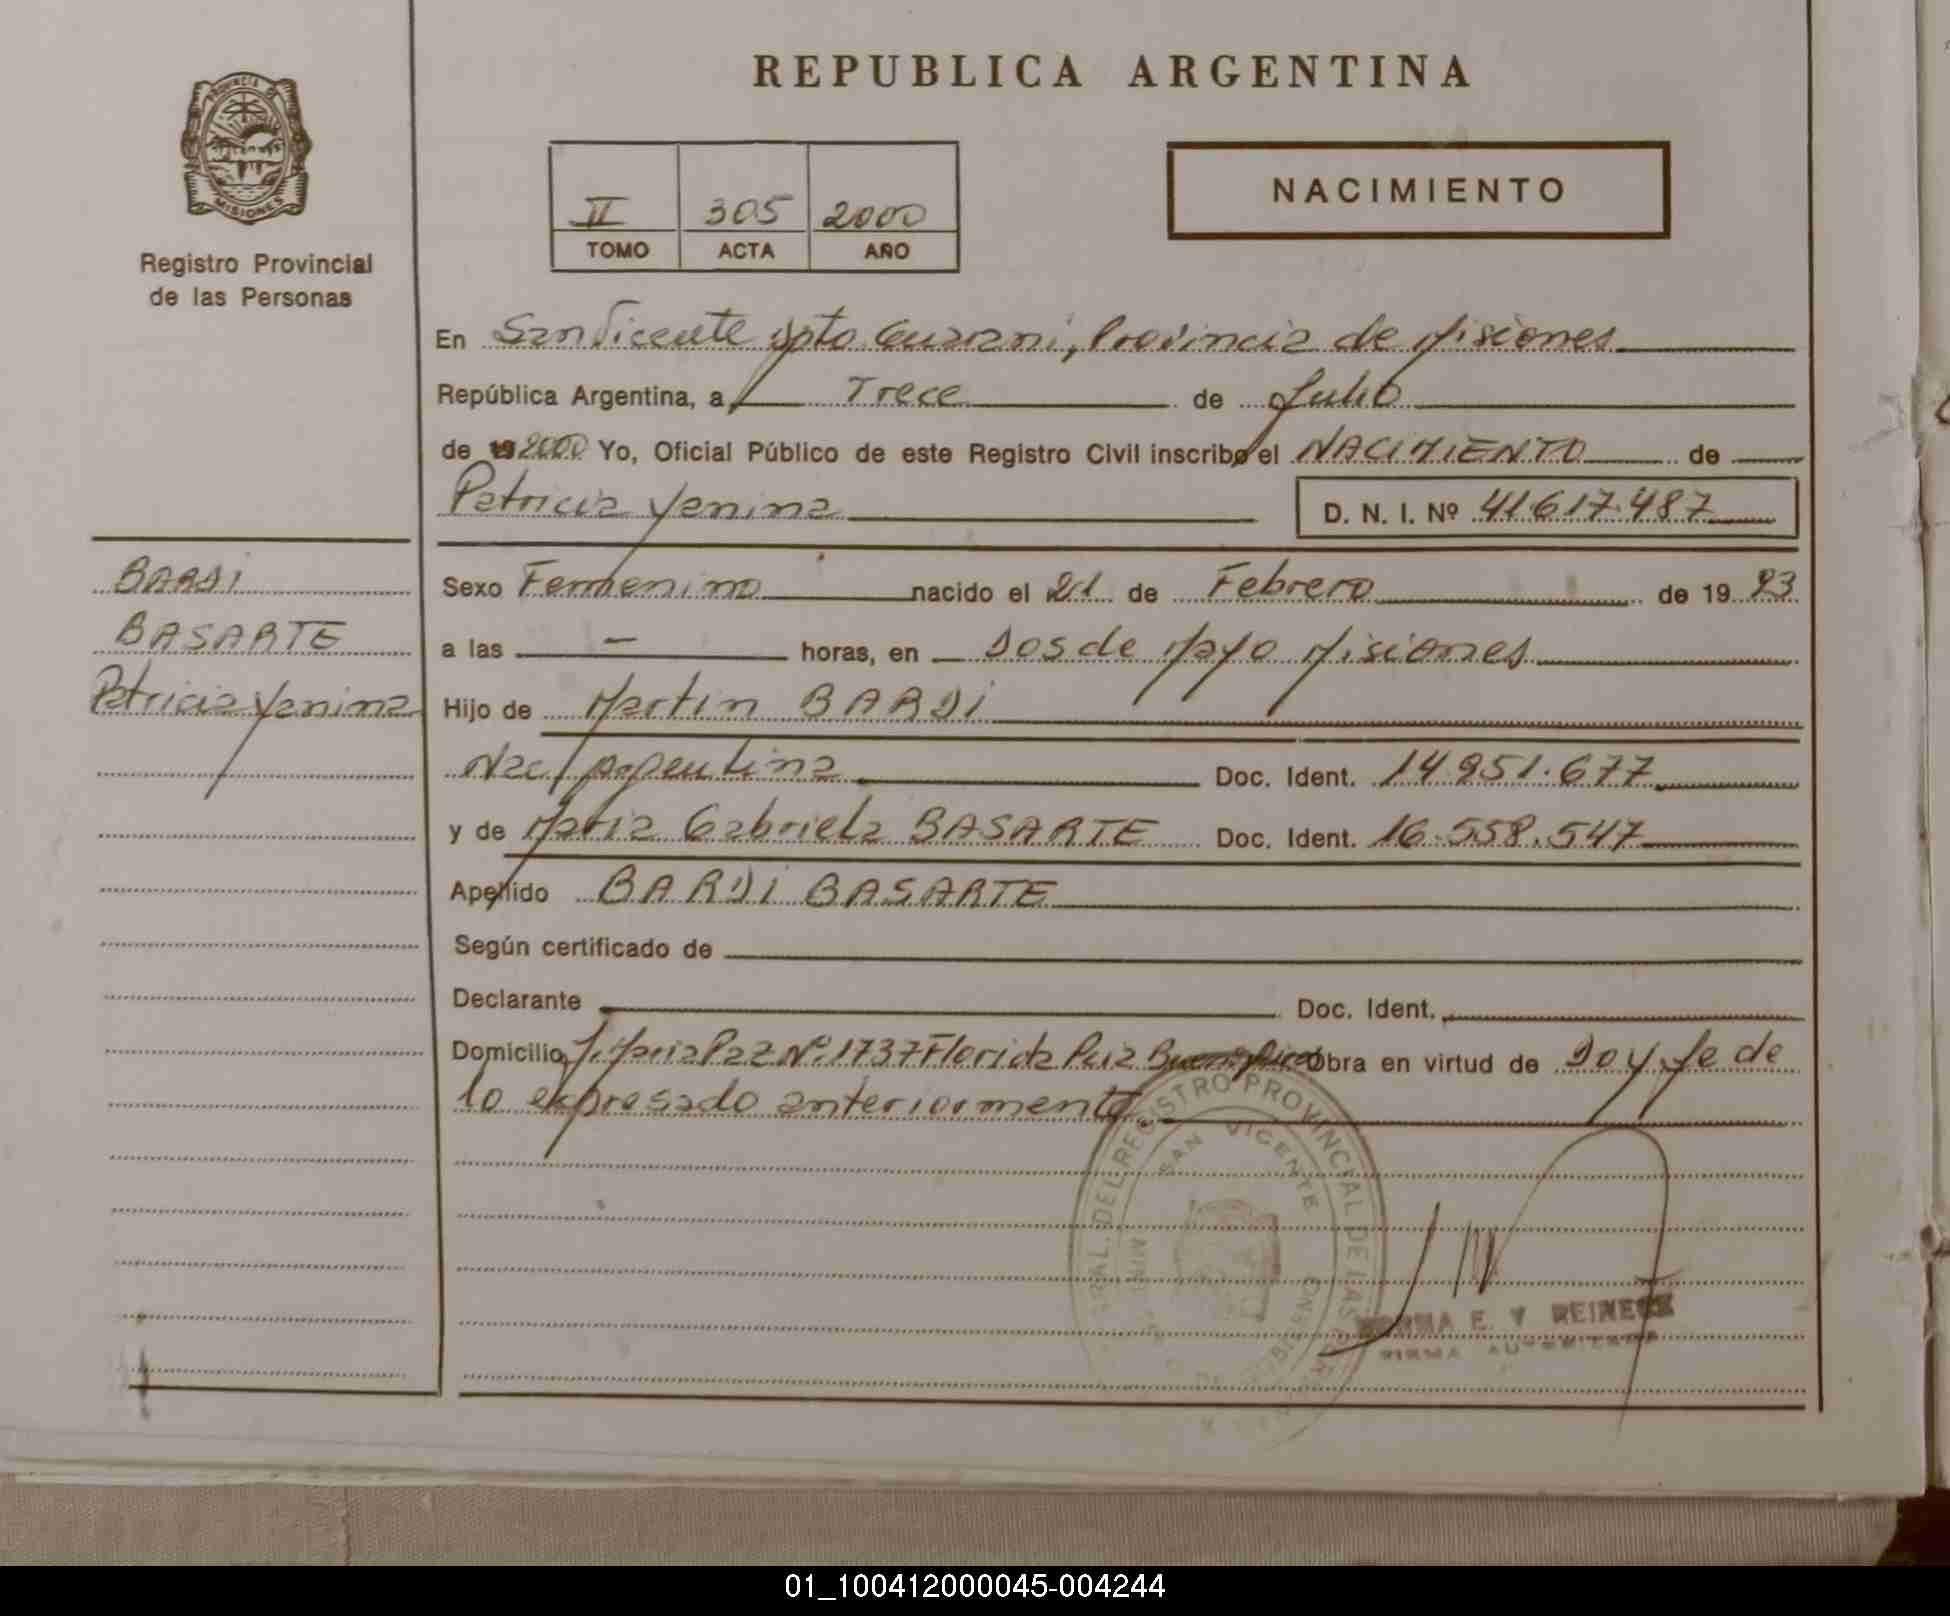 REPUBLICA ARGENTINA
PROVINCIA DE
MISIONES
Registro Provincial
de las Personas
II 305 2000
TOMO ACTA AÑO
NACIMIENTO
En San Vicente Dpto Guarani, Provincia de Misiones
República Argentina, a Trece de Julio
de 19 2000 Yo, Oficial Público de este Registro Civil inscribo el NACIMIENTO de
Patricia Yanina D. N. I. Nº 41.617.487
BARDI
BASARTE
Patricia Yanina
Sexo Femenino nacido el 21 de Febrero de 19 93
a las — horas, en Dos de Mayo Misiones
Hijo de Martin BARDI
Nac/ Argentina Doc. Ident. 14.951.677
y de Maria Gabriela BASARTE Doc. Ident. 16.558.547
Apellido BARDI BASARTE
Según certificado de
Declarante Doc. Ident.
Domicilio J. Maria Paz Nº 1737 Florida Obra en virtud de Doy fe de
lo expresado anteriormente.
REGISTRO PROVINCIAL DE LAS
SAN VICENTE
NORMA E. V REINECK
FIRMA AUTORIZADA
01_100412000045-004244